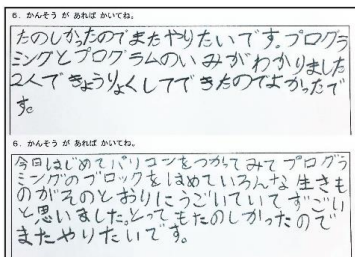 6. かんそう が あれば かいてね。
たのしかったのでまたやりたいです。プログラ
ミングとプログラムのいみがわかりました
2人できょうりょくしてできたのでよかったで
す。
6. かんそう が あれば かいてね。
今日はじめてパソコンをつかってみてプログラ
ミングのブロックをはめていろんな生きも
のがそのとおりにうごいていてすごい
と思いました。とってもたのしかったので
またやりたいです。